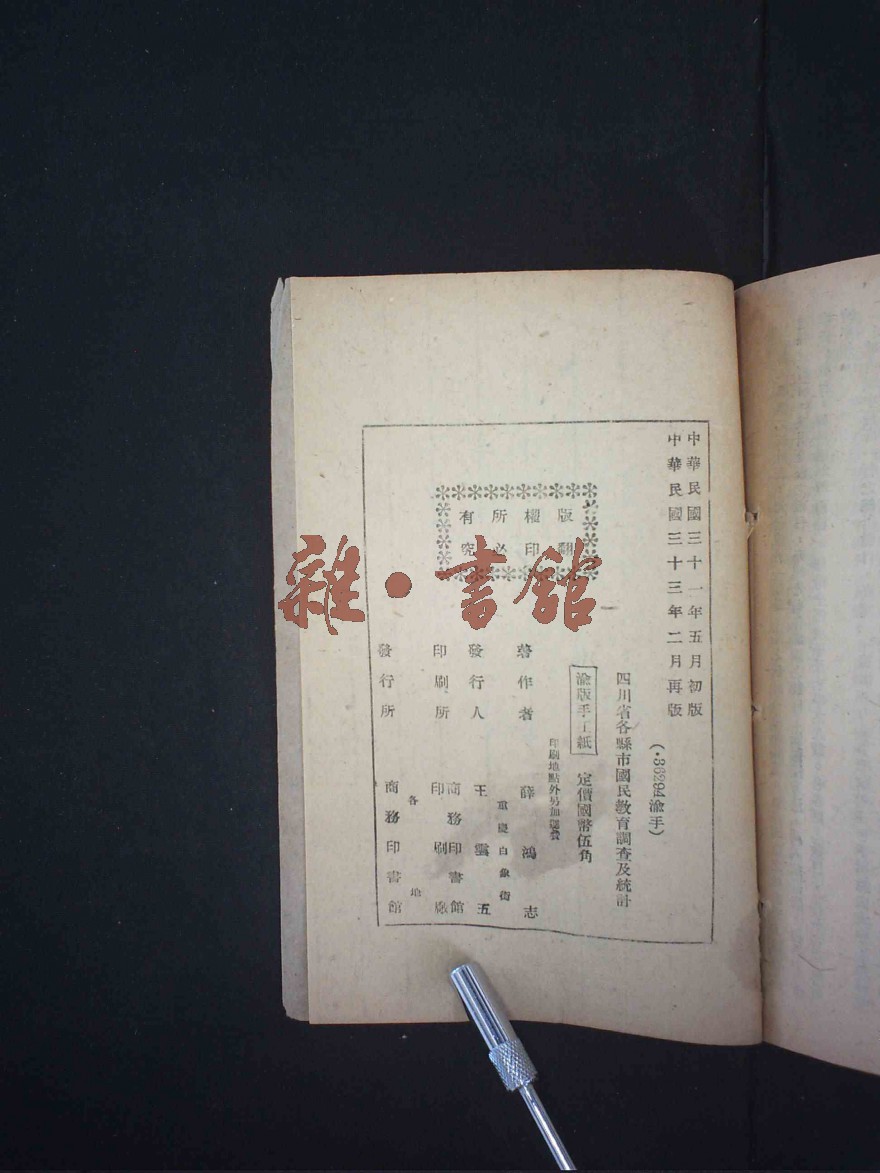 中華民國三十一年五月初版
中華民國三十三年二月再版
(·36294渝手)
四川省各縣市國民教育調查及統計
渝版手工紙 定價國幣伍角
印刷地點外另加運費
版權所有
翻印必究
著作者 薛鴻志
重慶白象街
發行人 王雲五
印刷所 商務印書館
印刷廠
各地
發行所 商務印書館
雜·書館